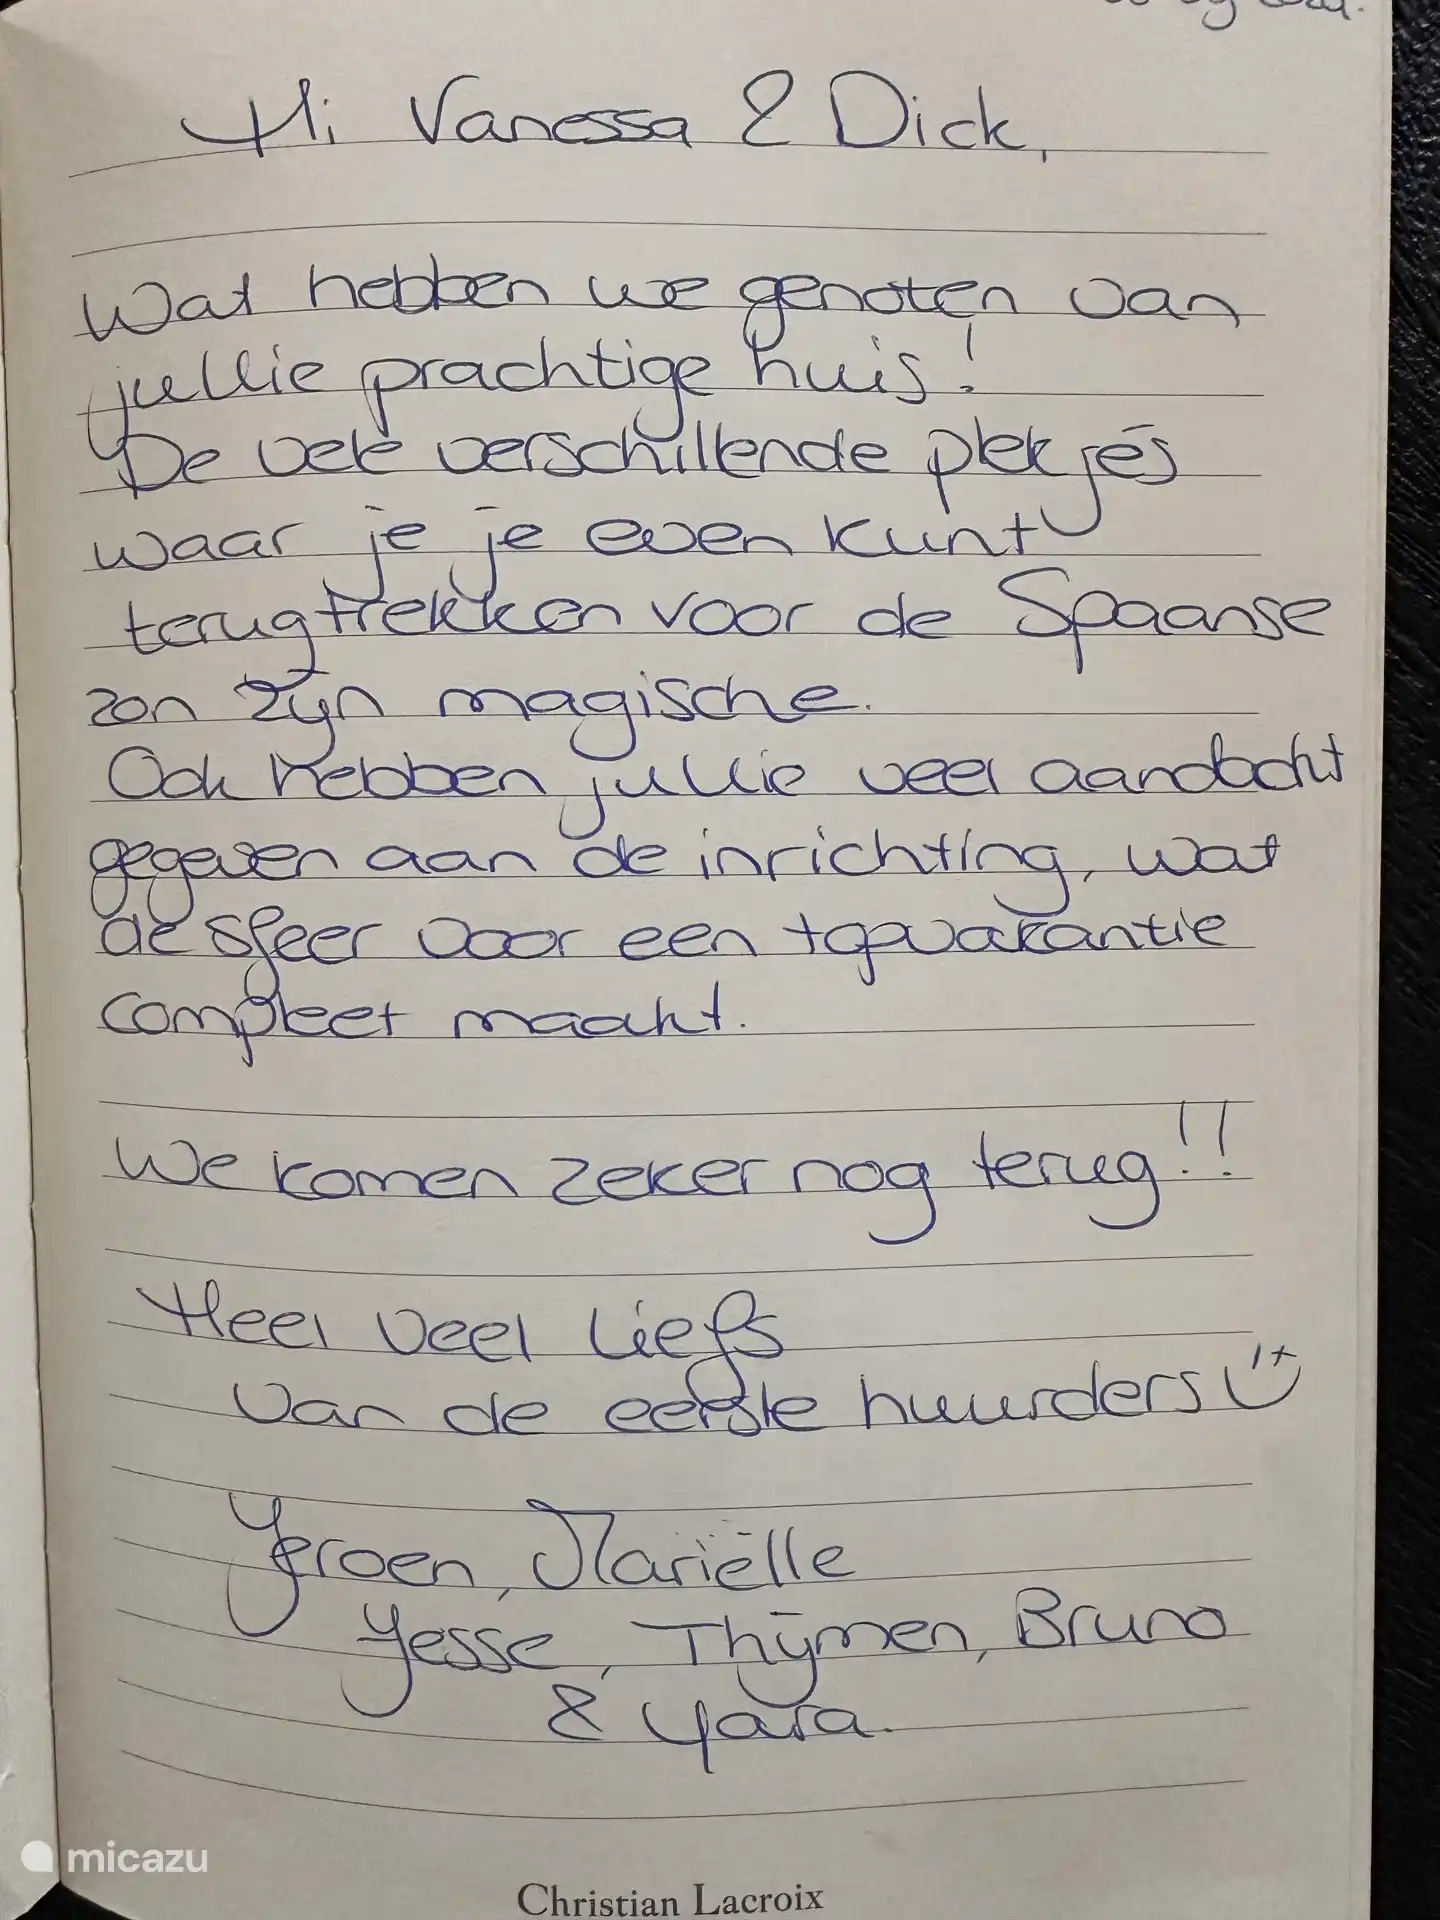 Hi Vanessa & Dick,
Wat hebben we genoten van
jullie prachtige huis!
De vele verschillende plekjes
waar je je even kunt
terugtrekken voor de Spaanse
zon zijn magische.
Ook hebben jullie veel aandacht
gegeven aan de inrichting, wat
de sfeer voor een topvakantie
compleet maakt.
We komen zeker nog terug!!
Heel veel liefs
van de eerste huurders
Jeroen, Mariëlle
Jesse, Thijmen, Bruno
& Yara.
micazu
Christian Lacroix